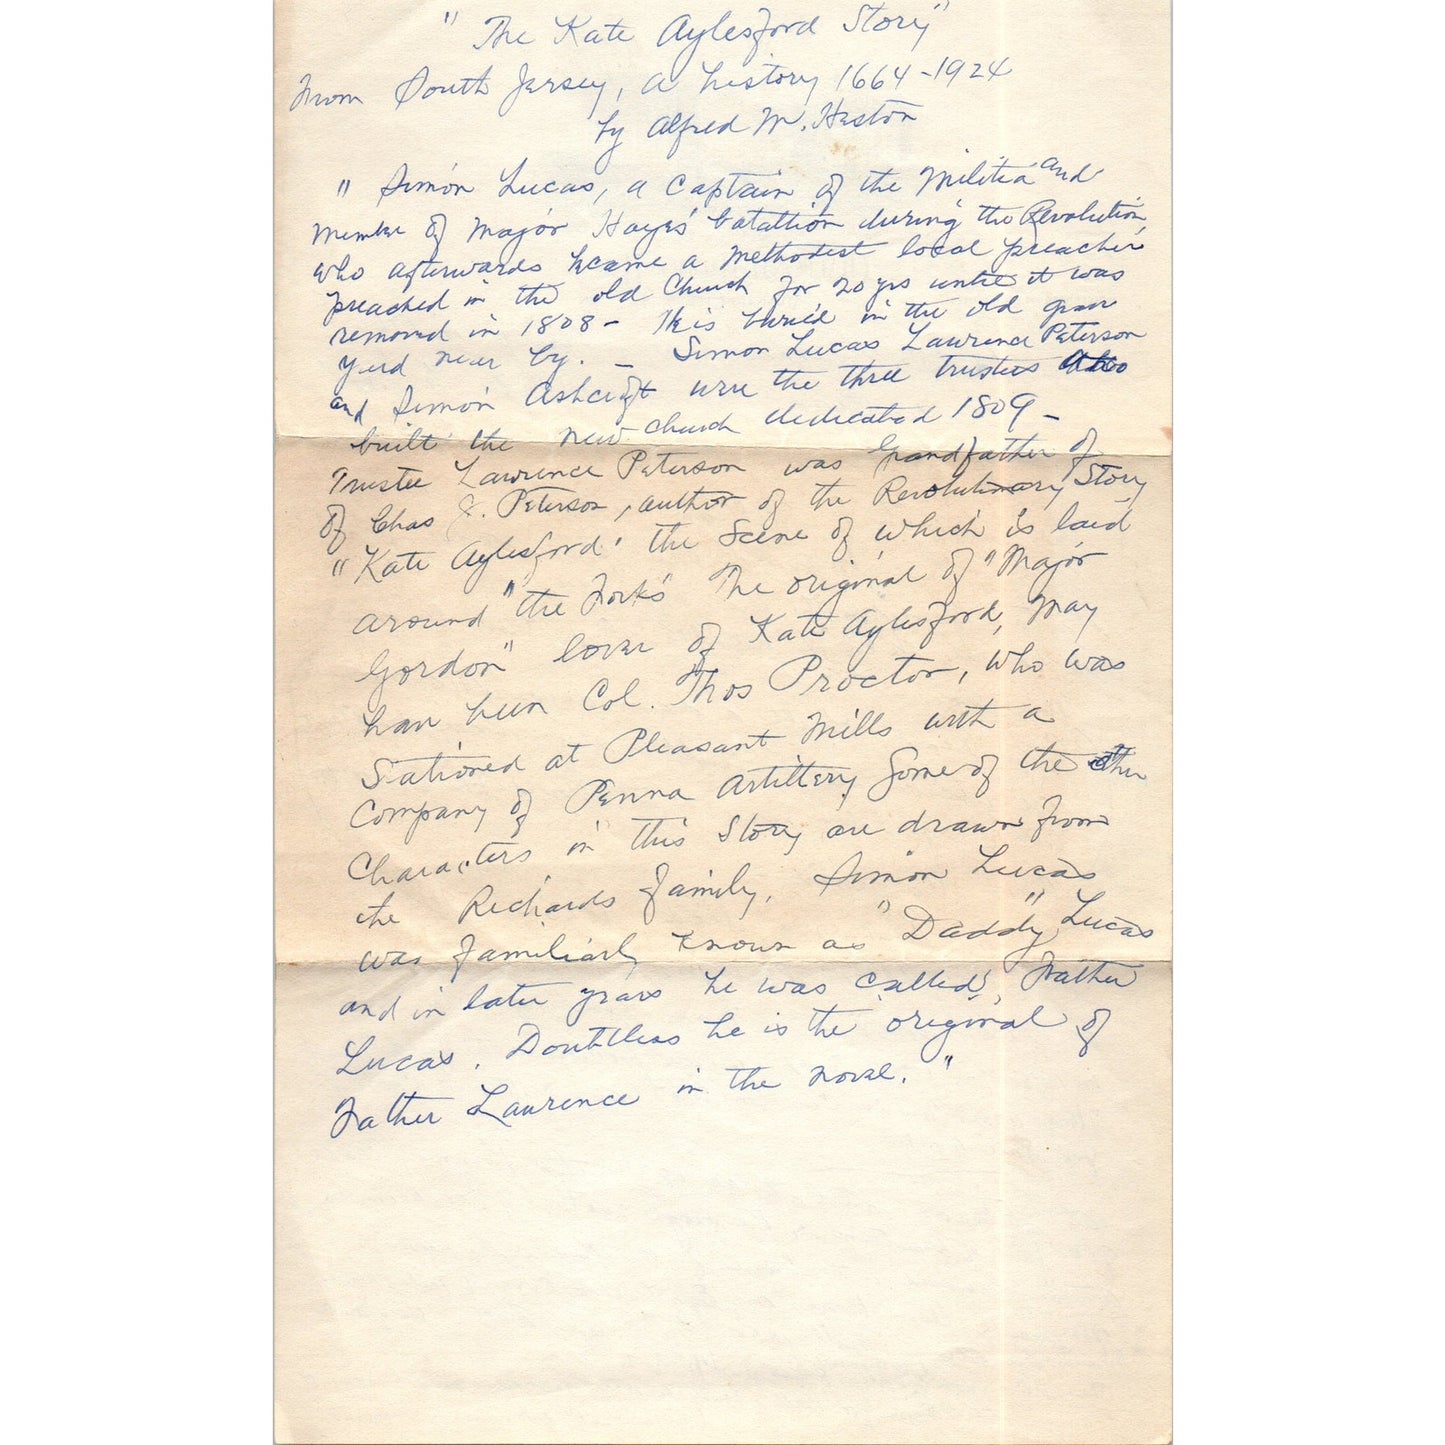 "The Kate Aylesford Story"
From South Jersey, a history 1664-1924
by Alfred M. Heston
" Simon Lucas, a Captain of the Militia and
member of Major Hayes' batattion during the Revolution,
who afterwards became a Methodist local preacher
preached in the old Church for 20 yrs until it was
removed in 1808 - He is buried in the old grave
yard near by. - Simon Lucas Lawrence Peterson
and Simon Ashcroft were the three trustees who
built the new church dedicated 1809 -
Trustee Lawrence Peterson was Grandfather of
of Chas J. Peterson, author of the Revolutionary Story
"Kate Aylesford" the scene of which is laid
around "the Forks" The original of "Major
Gordon" lover of Kate Aylesford, may
have been Col. Thos Proctor, who was
stationed at Pleasant Mills with a
Company of Penna Artillery Some of the other
Characters in this Story are drawn from
the Richards family. Simon Lucas
was familiarly known as "Daddy" Lucas
and in later years he was called, Father
Lucas. Doubtless he is the original of
Father Lawrence in the novel."